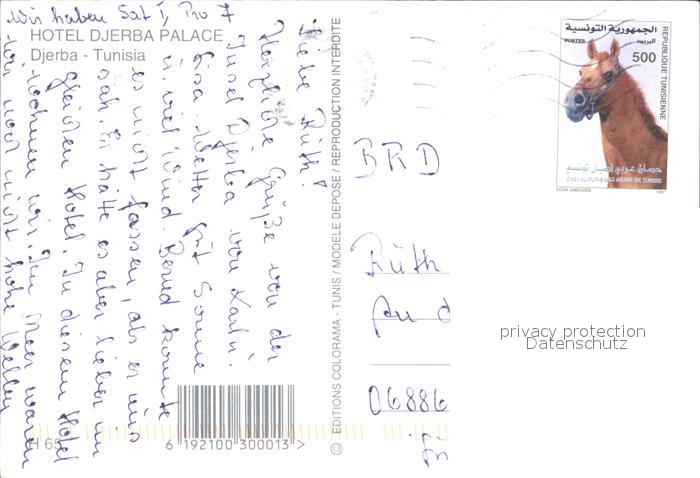 wir haben Sat 1, Pro 7
HOTEL DJERBA PALACE
Djerba - Tunisia
Liebe Ruth!
Herzliche Grüße von der
Insel Djerba von Karl u.
Lisa. Wetter gut Sonne
u. viel Wind. Bernd konnte
es nicht fassen, als er uns
sah. Er hätte es aber lieber im
gleichen Hotel. In diesem Hotel
wohnen wir. Im Meer waren
wir noch nicht hohe Wellen
H 65
6 192100 300013 >
© EDITIONS COLORAMA - TUNIS / MODELE DEPOSE / REPRODUCTION INTERDITE
الجمهورية التونسية
البريد
POSTES
500
REPUBLIQUE TUNISIENNE
حصان عربي أصيل تونسي
CHEVAL PUR-SANG ARABE DE TUNISIE
1997
BRD
Ruth
06886
privacy protection
Datenschutz